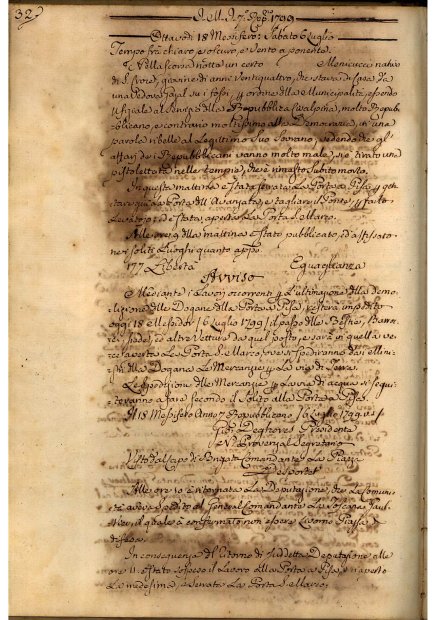 32
A. M. A. 7.° Rep.° 1799
Ottavo dì 18 Messifero: Sabato 6 Luglio
Tempo frà chiaro, e oscuro, e Vento a ponente.
Nella scorsa notte un certo Menicucci nativo
di anni Ventiquattro, che stava di Casa da
una Vedova su i fossi, ordine della Municipalità, essendo
Ufiziale al Servizio della Repubblica Cisalpina, molto Repub-
blicano, e contrario moltissimo alla Democrazia, in una
parola ribelle al Legittimo Suo Sovrano, vedendo che gl'
affari dei Repubblicani vanno molto male, si è tirato una
pistolettata nelle tempie, ed è rimasto Subito morto.
In questa mattina è stata serrata la Porta a Pisa,
la Porta dell'Avanzata, e tagliare il Ponte, farlo
Levatojo, ed è stata aperta la Porta S. Marco.
Alle ore 9 della mattina è stato pubblicato, ed affissato
nei soliti Luoghi quanto app.°
177 Libertà Eguaglianza
Avviso
Mediante i Lavori occorrenti l'ultimazione della demo-
lizione della Dogana della Porta a Pisa, resterà impedito
oggi 18 Messidor (6 Luglio 1799) il passo delle Bestie, Barroc-
ed altre Vetture da quel posto, e sarà in quella ve-
ce aperta la Porta S. Marco, ove si spediranno dai Mini-
stri della Dogana le Mercanzie la via di Terra.
La spedizione delle Mercanzie la via di acqua si segui-
teranno a fare secondo il Solito alla Porta a Pisa.
Li 18 Messifero Anno 7 Repubblicano (6 Luglio 1799. v. s.)
Deghores Presidente
Provenzal Segretario
Visto dal Capo di Brigata Comandante la Piazza
Alle ore 10 è ritornata la Deputazione, che la Comuni-
tà aveva spedito al General Comandante la Toscana Gaul-
tier, il quale à confermato non essere Livorno Piazza
difesa.
In conseguenza del ritorno di suddetta Deputazione alle
ore 11 è stato sospeso il Lavoro alla Porta a Pisa, riaperto
la medesima, e serrata la Porta S. Marco.